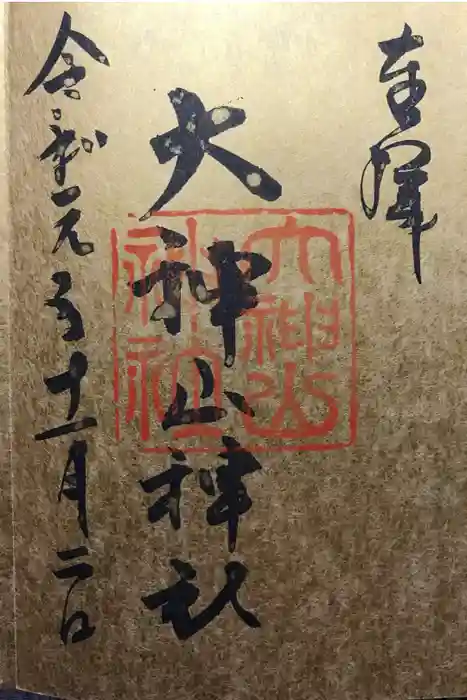 奉拝
大神山神社
令和元年十一月二日
大神山
神社